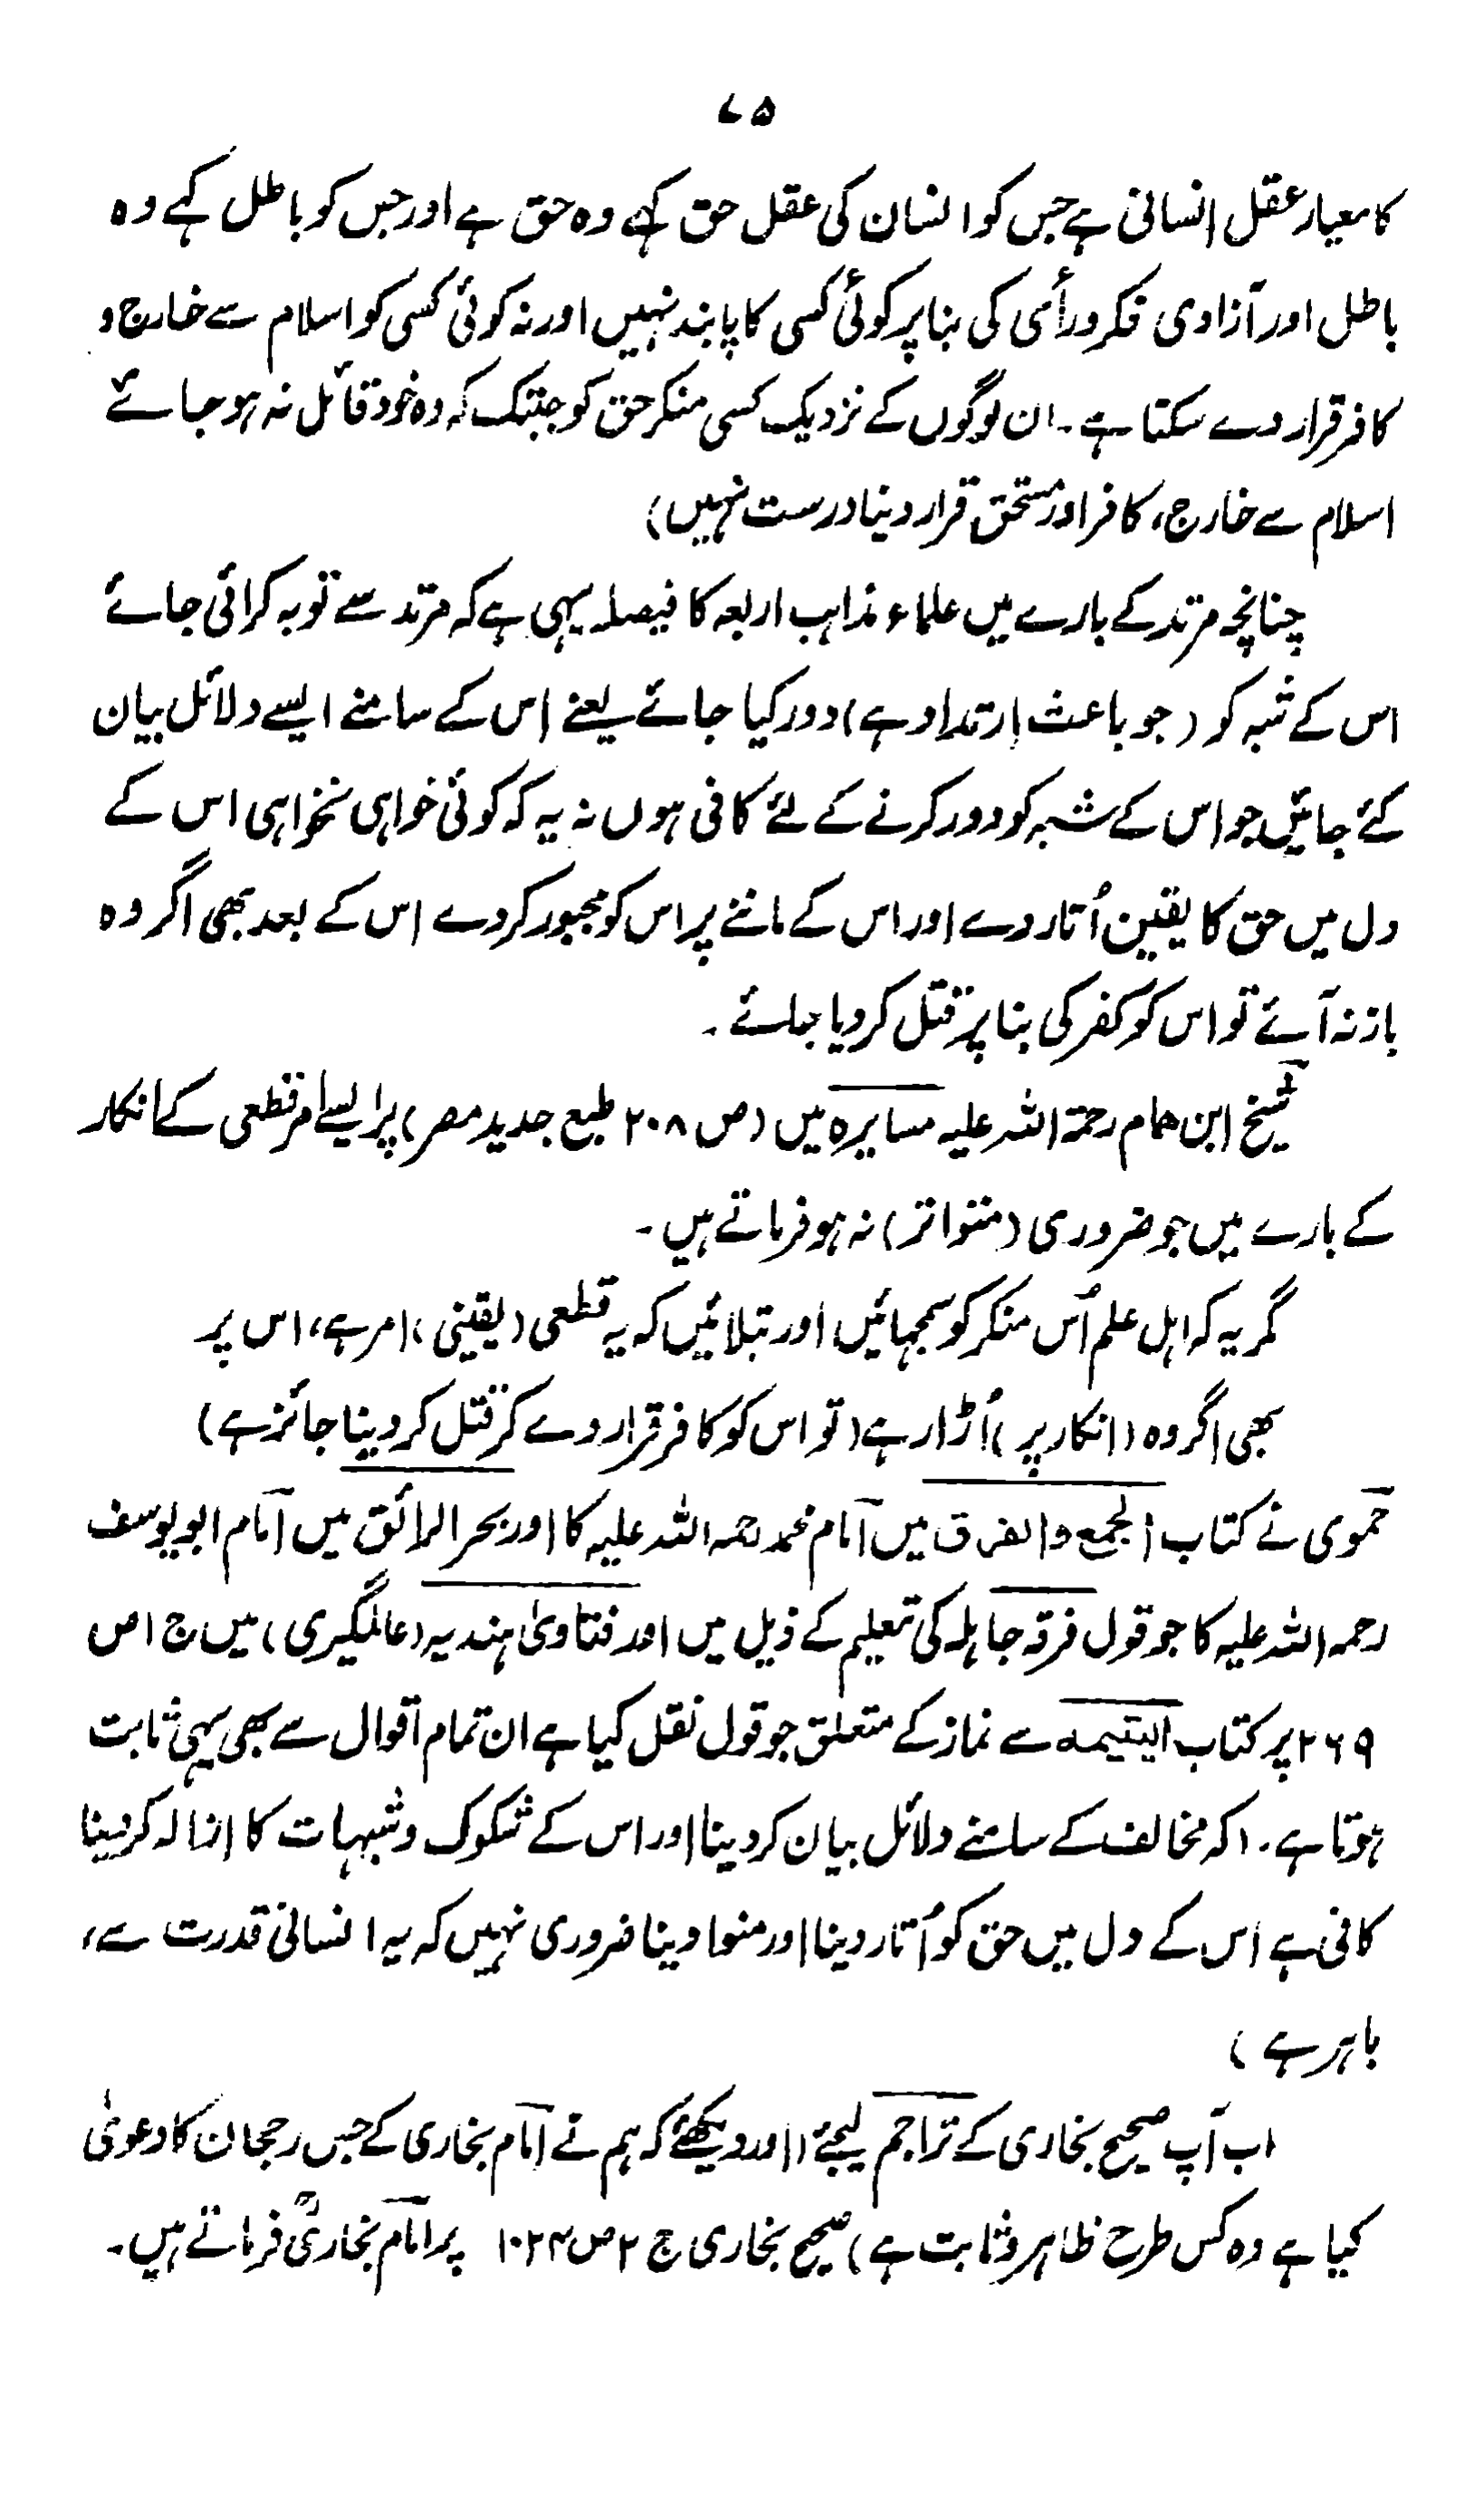 ۷۵
کا معیار عقل انسانی ہے جس کو انسان کی عقل حق کہے وہ حق ہے اور جس کو باطل کہے وہ
باطل اور آزادی فکر و رأی کی بنا پر کوئی کسی کا پابند نہیں اور نہ کوئی کسی کو اسلام سے خارج و
کافر قرار دے سکتا ہے۔ ان لوگوں کے نزدیک کسی منکر حق کو جبتک کہ وہ خود قائل نہ ہو جائے
اسلام سے خارج، کافر اور مستحق قرار دینا درست نہیں)
چنانچہ مرتد کے بارے میں علماء مذاہب اربعہ کا فیصلہ یہی ہے کہ مرتد سے توبہ کرائی جائے
اس کے شبہ کو (جو باعث ارتداد ہے) دور کیا جائے یعنے اس کے سامنے ایسے دلائل بیان
کئے جائیں جو اس کے شبہ کو دور کرنے کے لئے کافی ہوں نہ یہ کہ کوئی خواہی نخواہی اس کے
دل میں حق کا یقین اُتار دے اور اس کے ماننے پر اس کو مجبور کر دے اس کے بعد بھی اگر وہ
باز نہ آئے تو اس کو کفر کی بنا پر قتل کر دیا جائے۔
شیخ ابن همام رحمۃ اللہ علیہ مسایرہ میں (ص ۲۰۸ طبع جدید مصر) پر ایسے امر قطعی کے انکار
کے بارے میں جو ضروری (متواتر) نہ ہو فرماتے ہیں۔
گر یہ کہ اہل علم اُس منکر کو سمجہائیں اور بتلائیں کہ یہ قطعی (یقینی) امر ہے، اس پر
بھی اگر وہ (انکار پر) اُڑا رہے (تو اس کو کافر قرار دے کر قتل کر دینا جائز ہے)
حموی نے کتاب الجمع والفرق میں امام محمد رحمہ اللہ علیہ کا اور بحر الرائق میں امام ابو یوسف
رحمہ اللہ علیہ کا جو قول فرقہ جاہلہ کی تعلیم کے ذیل میں اور فتاویٰ ہندیہ (عالمگیری) میں ج ۱ ص
۲۶۹ پر کتاب الیتیمه سے نماز کے متعلق جو قول نقل کیا ہے ان تمام اقوال سے بھی یہی ثابت
ہوتا ہے۔ (کہ مخالف کے سامنے دلائل بیان کر دینا اور اس کے شکوک و شبہات کا ازالہ کر دینا
کافی ہے اس کے دل میں حق کو اُتار دینا اور منوا دینا ضروری نہیں کہ یہ انسانی قدرت سے،
باہر ہے)
اب آپ صحیح بخاری کے تراجم لیجئے (اور دیکھئے کہ ہم نے امام بخاری کے جس رجحان کا دعویٰ
کیا ہے وہ کس طرح ظاہر و ثابت ہے) صحیح بخاری ج ۲ ص ۱۰۲۴ پر امام بخاریؒ فرماتے ہیں۔